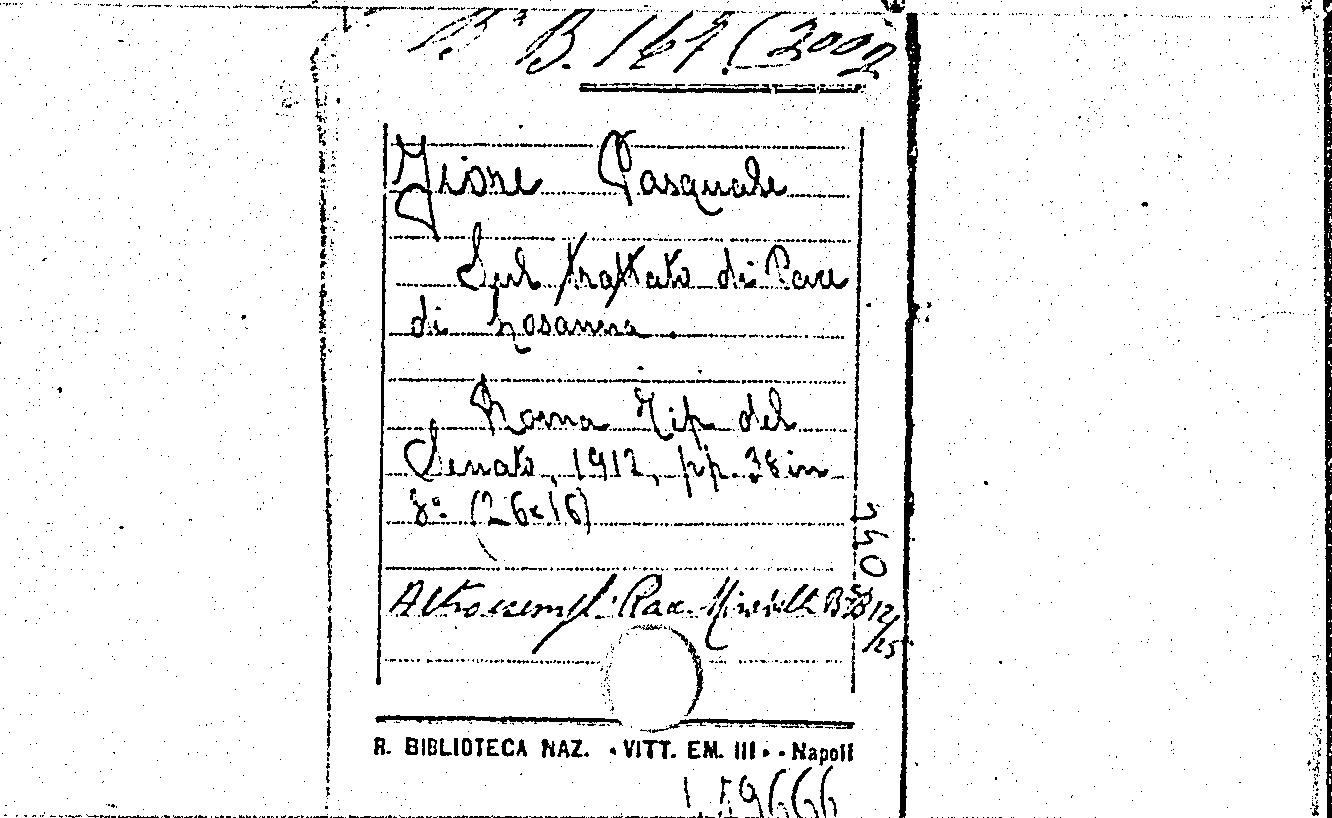 Bª B. 167 (2002
Fiore Pasquale
Sul trattato di Pace
di Losanna.
Roma Tip del
Senato, 1912, pp. 38 in
8° (26x16)
Altro esempl: Rac. B 12/25
R. BIBLIOTECA NAZ. «VITT. EM. III» - Napoli
159666